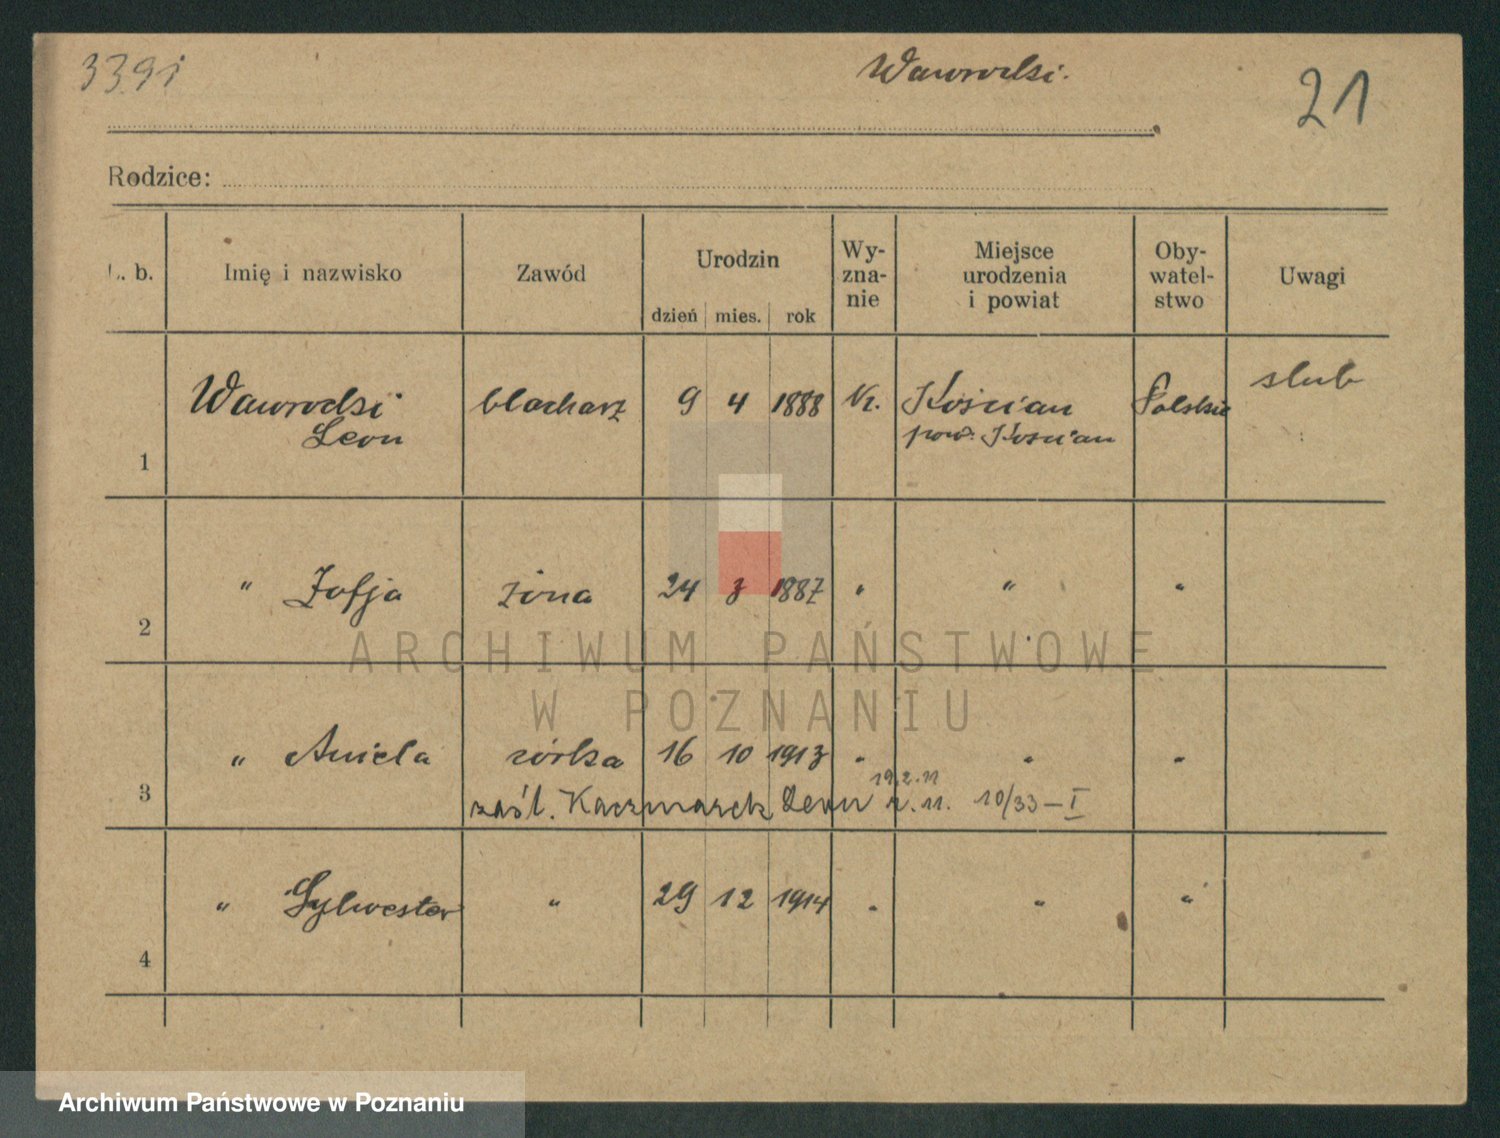 3391
Wawrocki.
21
Rodzice:
L. b. Imię i nazwisko Zawód Urodzin dzień mies. rok Wy-zna-nie Miejsce urodzenia i powiat Oby-watel-stwo Uwagi
1 Leon blacharz 9 4 1888 Kościan Polskie slub
pow. Kościan
2 " Zofja żona 24 3 1887 " " "
3 " Aniela córka 16 10 1913 " " "
zaśl. Kaczmarek Leon 19.2.11 r. 11. 10/33–I
4 " Sylwester " 29 12 1914 " " "
ARCHIWUM PAŃSTWOWE
W POZNANIU
Archiwum Państwowe w Poznaniu